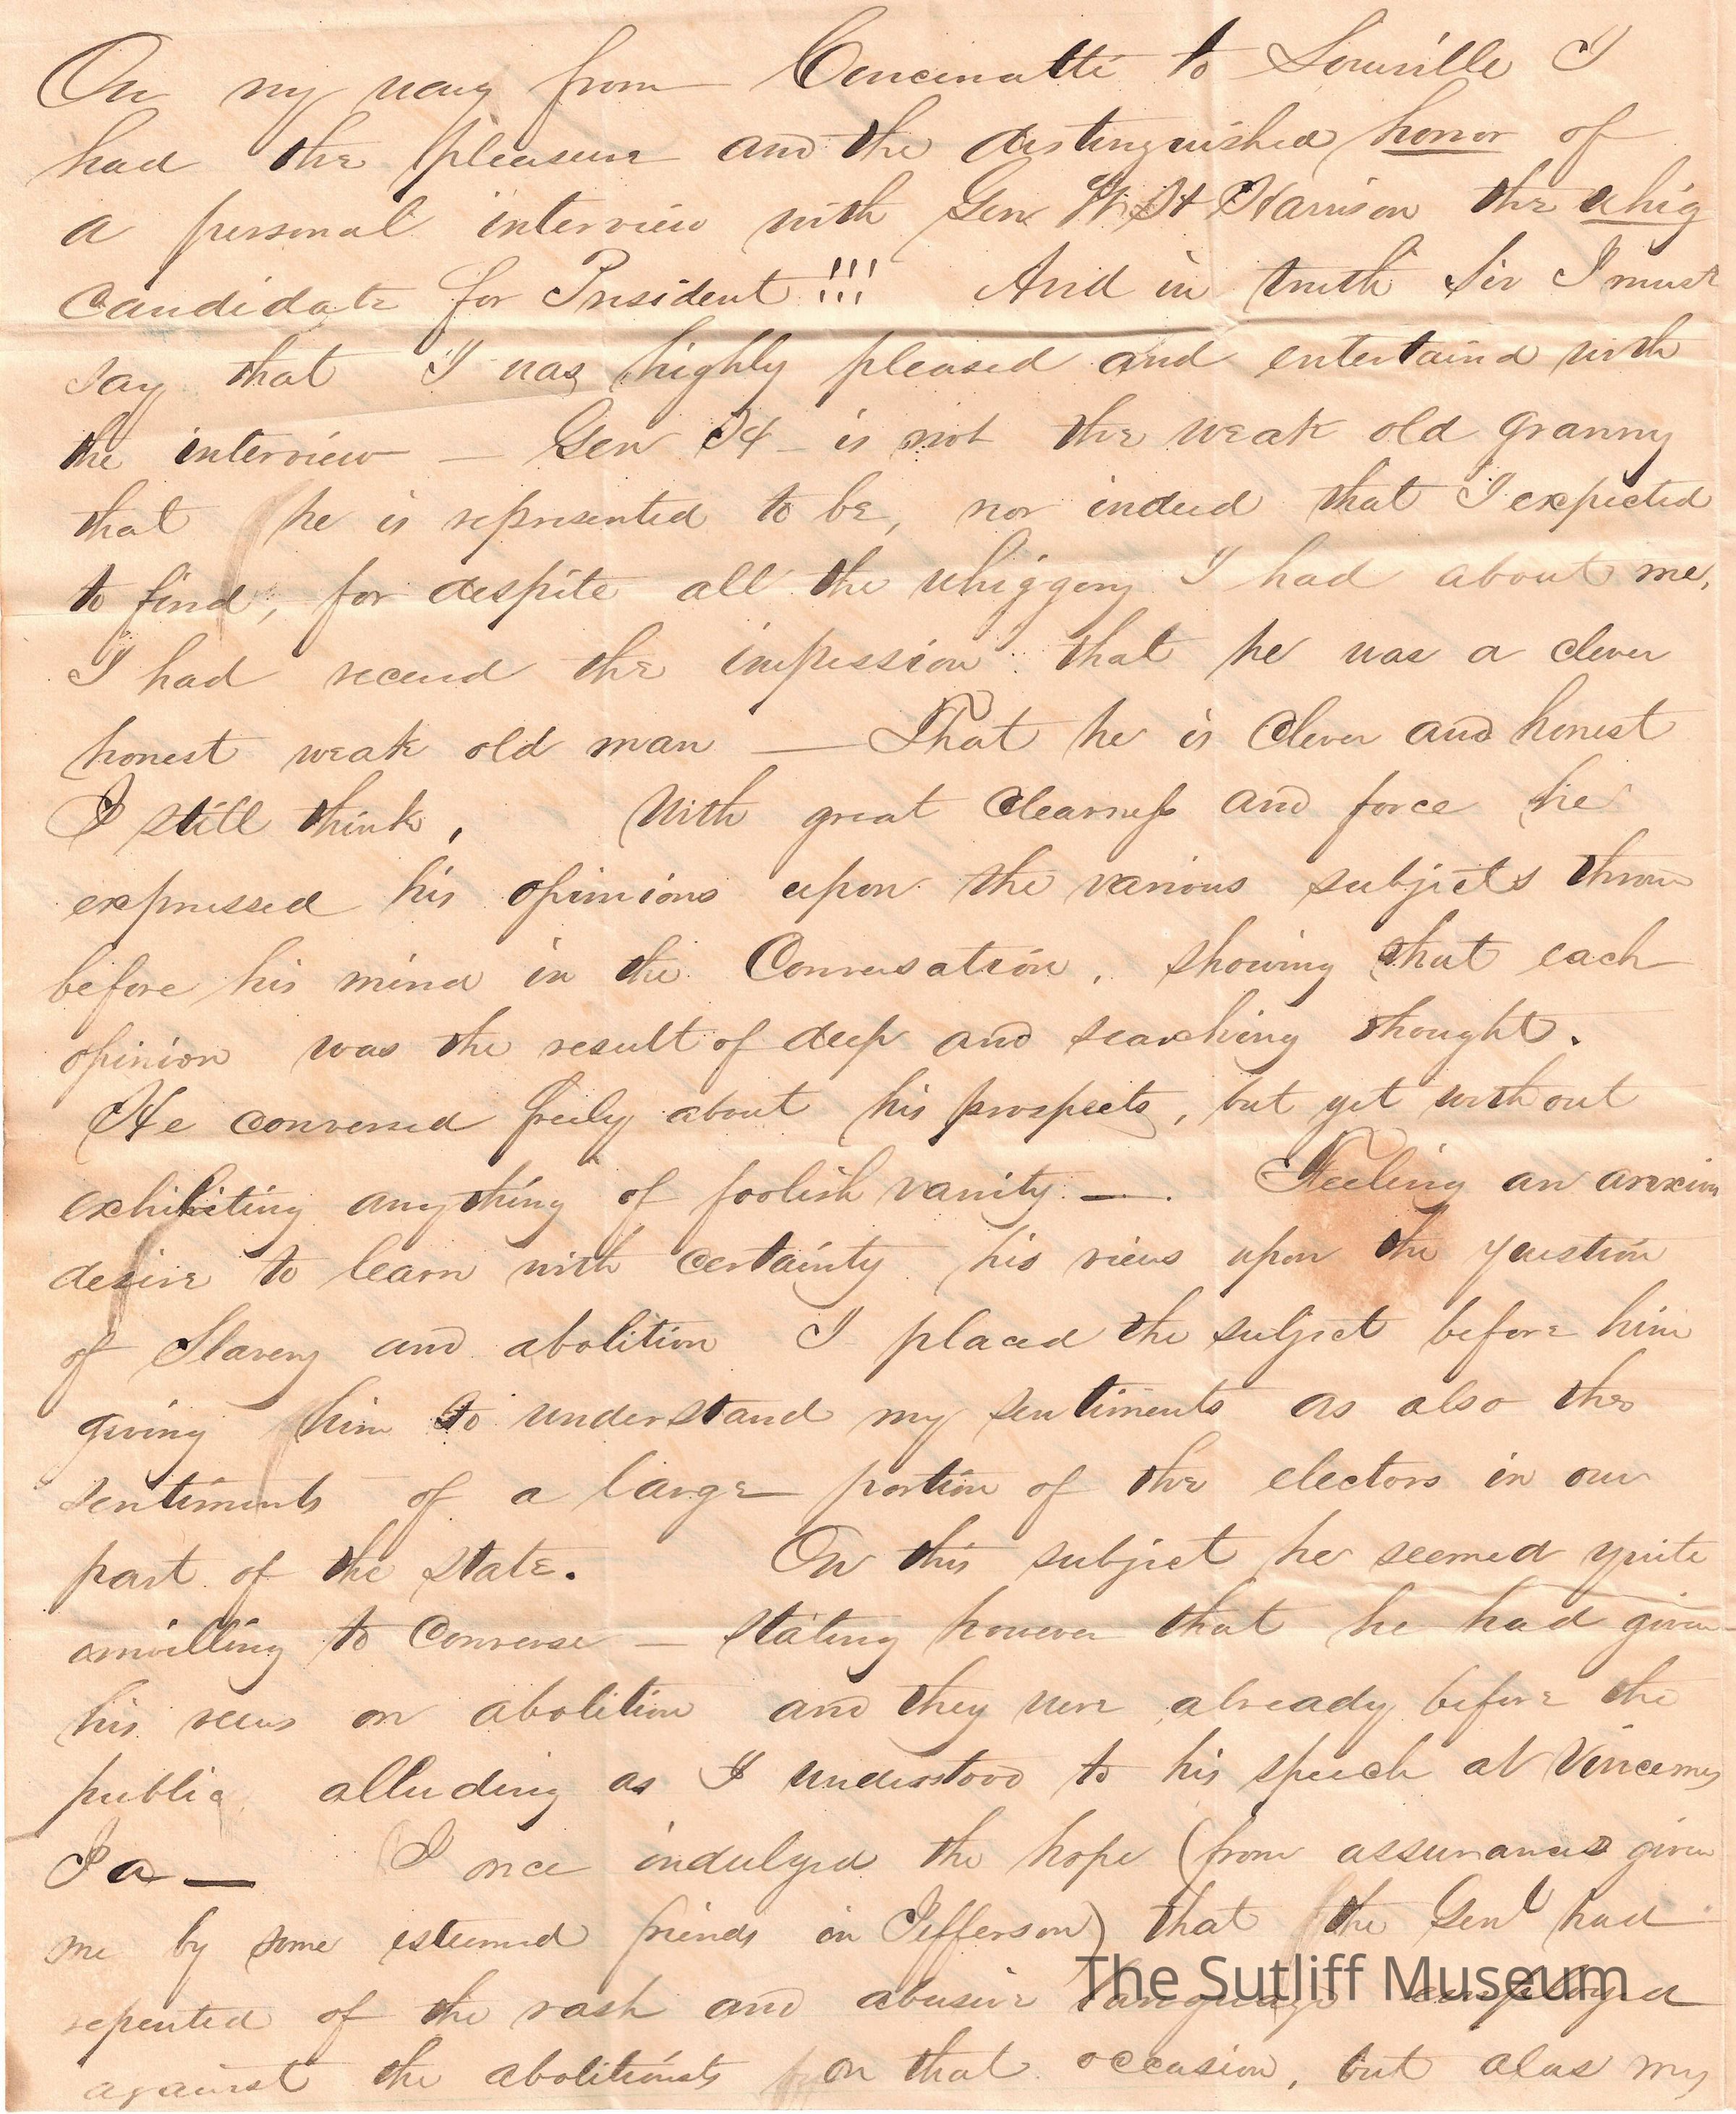 On my way from Concinatti to Louville I
had the pleasure and the distinguished honor of
a personal interview with Gen W. H Harrison the whig
Candidate for President !!! And in truth Sir I must
say that I was highly pleased and entertaind with
the interview — Gen H – is not the weak old granny
that he is represented to be, nor indeed that I expected
to find, for despite all the whiggery I had about me,
I had receivd the impession that he was a clever
honest weak old man — That he is Clever and honest
I still think, With great Clearness and force he
expressed his opinions upon the various subjects thrown
before his mind in the Conversation, showing that each
opinion was the result of deep and searching thought.
He conversed freely about his prospects, but yet without
exhibiting anything of foolish vanity —. Feeling an anxious
desire to learn with certainty his views upon the question
of Slavery and abolition I placed the subject before him
giving him to understand my sentiments as also the
sentiments of a large portion of the electors in our
part of the state. On this subject he seemed quite
unwilling to Converse — stating however that he had given
his views on abolition and they were already before the
public alluding as I understood to his speech at Vincennes
Ia — I once indulged the hope (from assurances given
me by some esteemed friends in Jefferson) that the Genl had
repented of the rash and abusive language employed
against the abolitionists on that occasion, but alas my
The Sutliff Museum